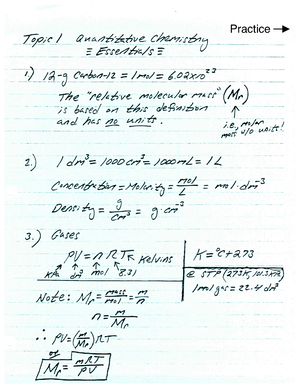 Practice →
Topic 1 Quantitative Chemistry
≡ Essentials ≡
1.) 12-g Carbon-12 = 1 mol = 6.02x10²³
The "relative molecular mass" (Mr)
is based on this definition
and has no units.
i.e., molar
mass w/o units!
2.) 1 dm³ = 1000 cm³ = 1000 mL = 1 L
Concentration = Molarity = mol/L = mol·dm⁻³
Density = g/cm³ = g·cm⁻³
3.) Gases
PV = nRT ← Kelvins
kPa dm³ mol 8.31
K = °C + 273
@ STP (273K, 101.3 kPa)
1 mol gas = 22.4 dm³
Note: Mr = mass/mol = m/n
n = m/Mr
∴ PV = (m/Mr)RT
or
Mr = mRT/PV